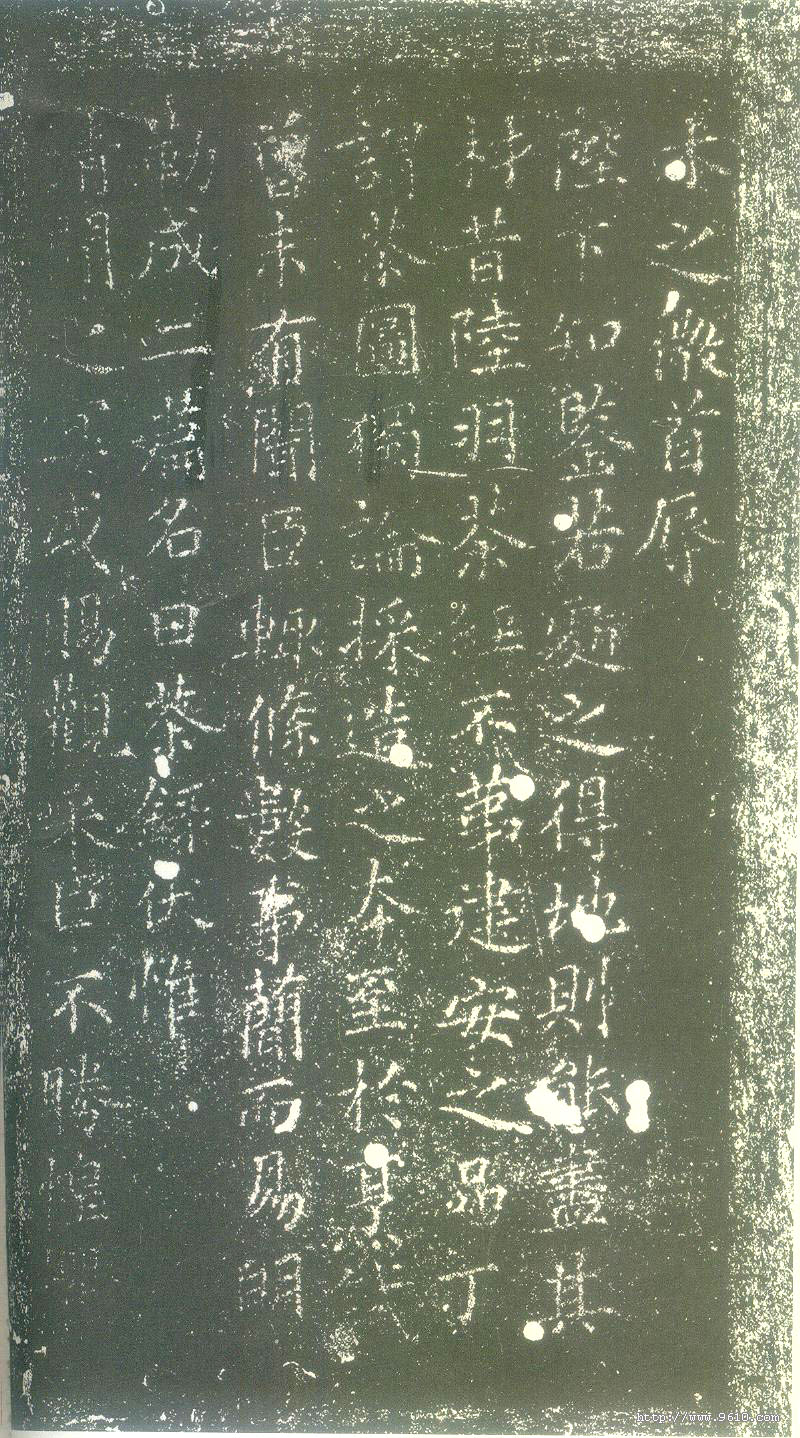 木之微首辱
陛下知鑒若處之得地則能盡其
材昔陸羽茶經不第建安之品丁
謂茶圖獨論採造之本至於烹試
曾未有聞臣輒條數事簡而易明
勒成二篇名曰茶錄伏惟
清閒之宴或賜觀采臣不勝惶
http://www.9610.com